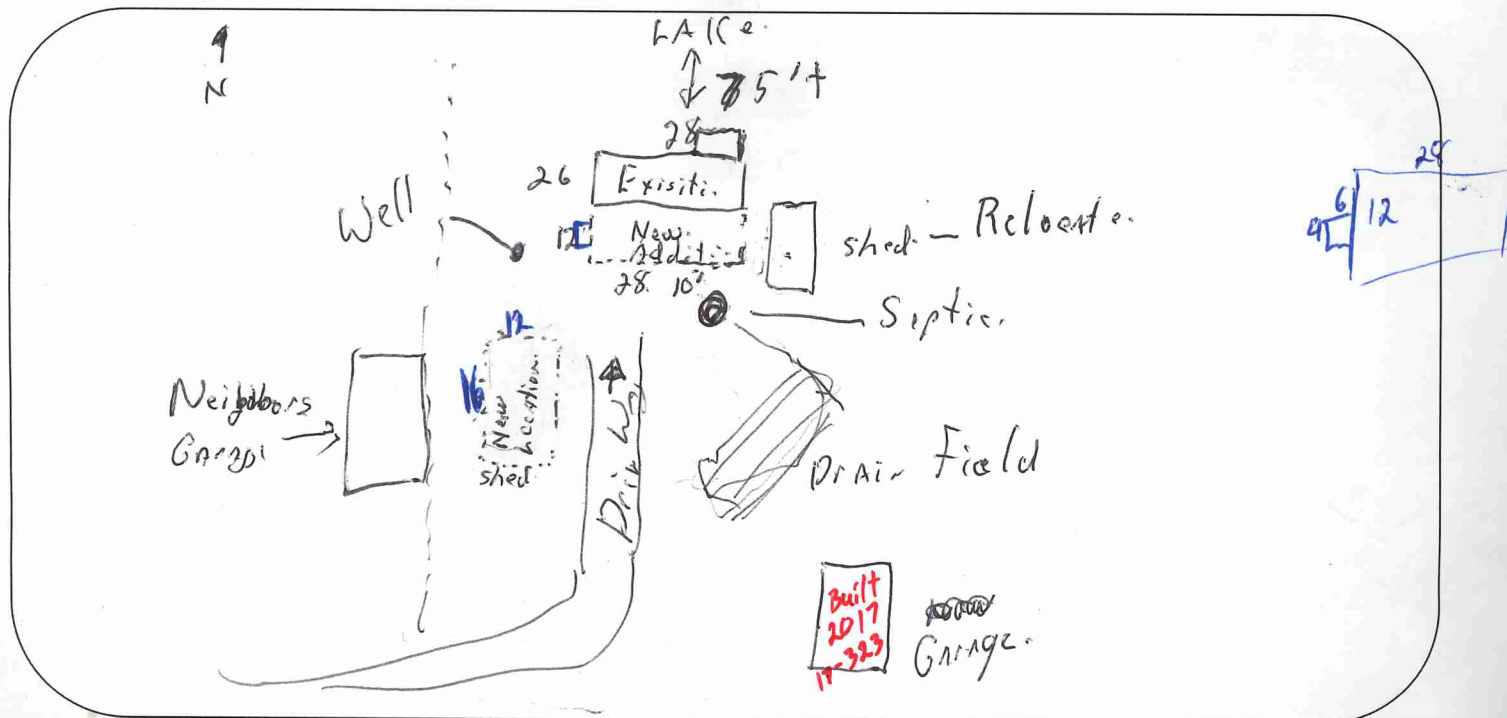 LAKe.
N
75'+
28
26
Exisiti.
Well
12
New
Addit.
28 10'
shed - Relocate.
Septic.
12
16
New
Location
shed
Neighbors
Garage
Driv Way
Drain Field
Built
2017
17-323
Garage.
28
6
12
4